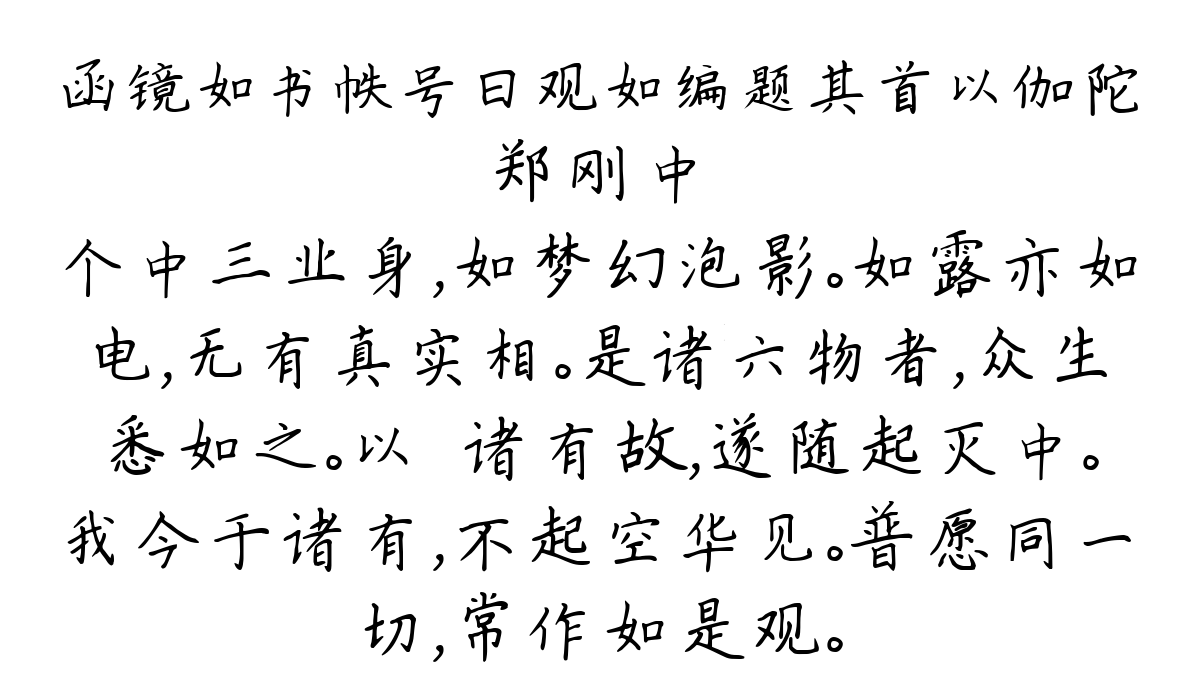 函镜如书帙号曰观如编题其首以伽陀
郑刚中
个中三业身,如梦幻泡影。如露亦如
电,无有真实相。是诸六物者,众生
悉如之。以 诸有故,遂随起灭中。
我今于诸有,不起空华见。普愿同一
切,常作如是观。